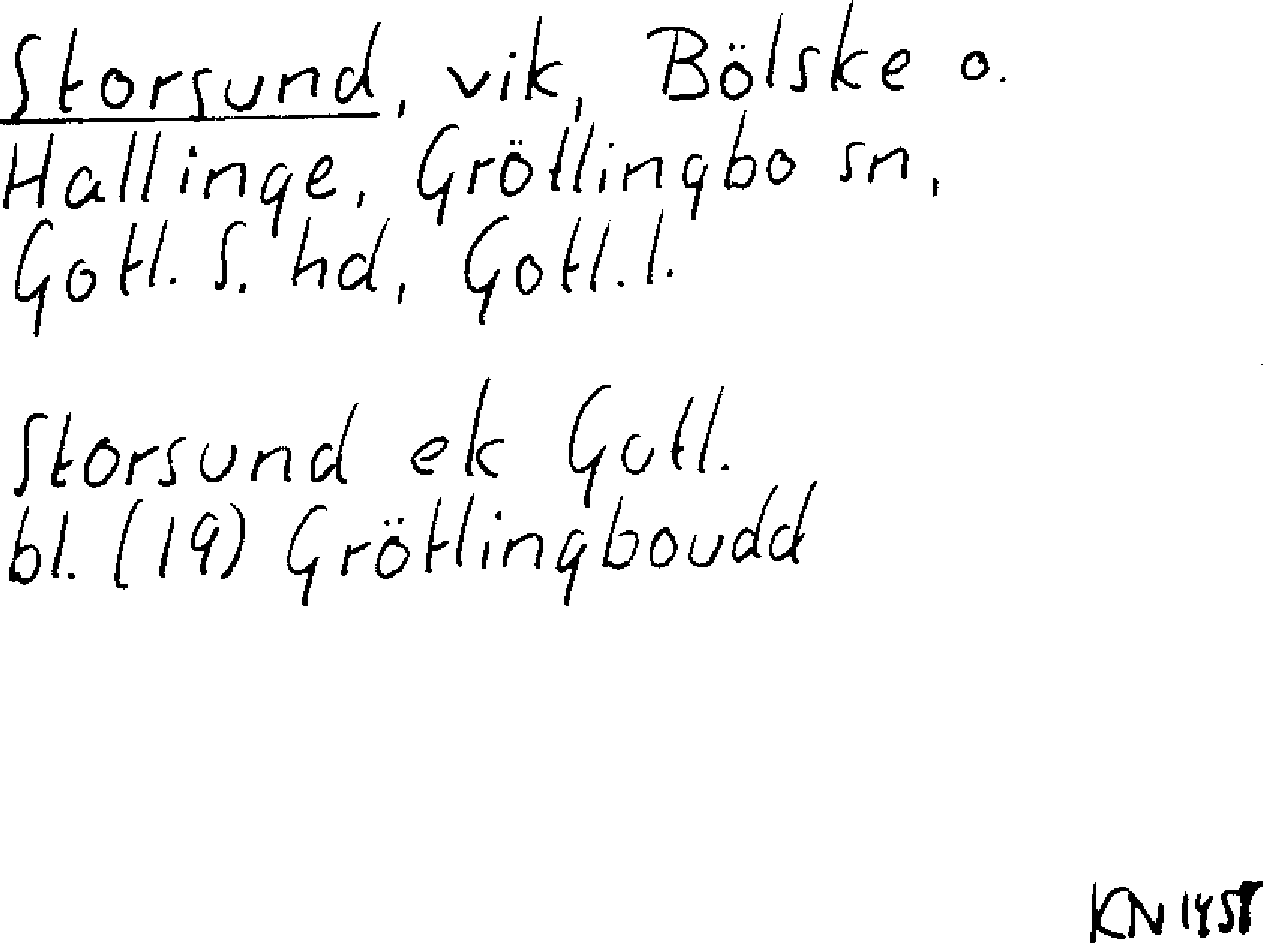 Storsund, vik, Bölske o.
Hallinge, Grötlingbo sn,
Gotl. S. hd, Gotl. l.
Storsund ek Gotl.
bl. (19) Grötlingboudd
KN